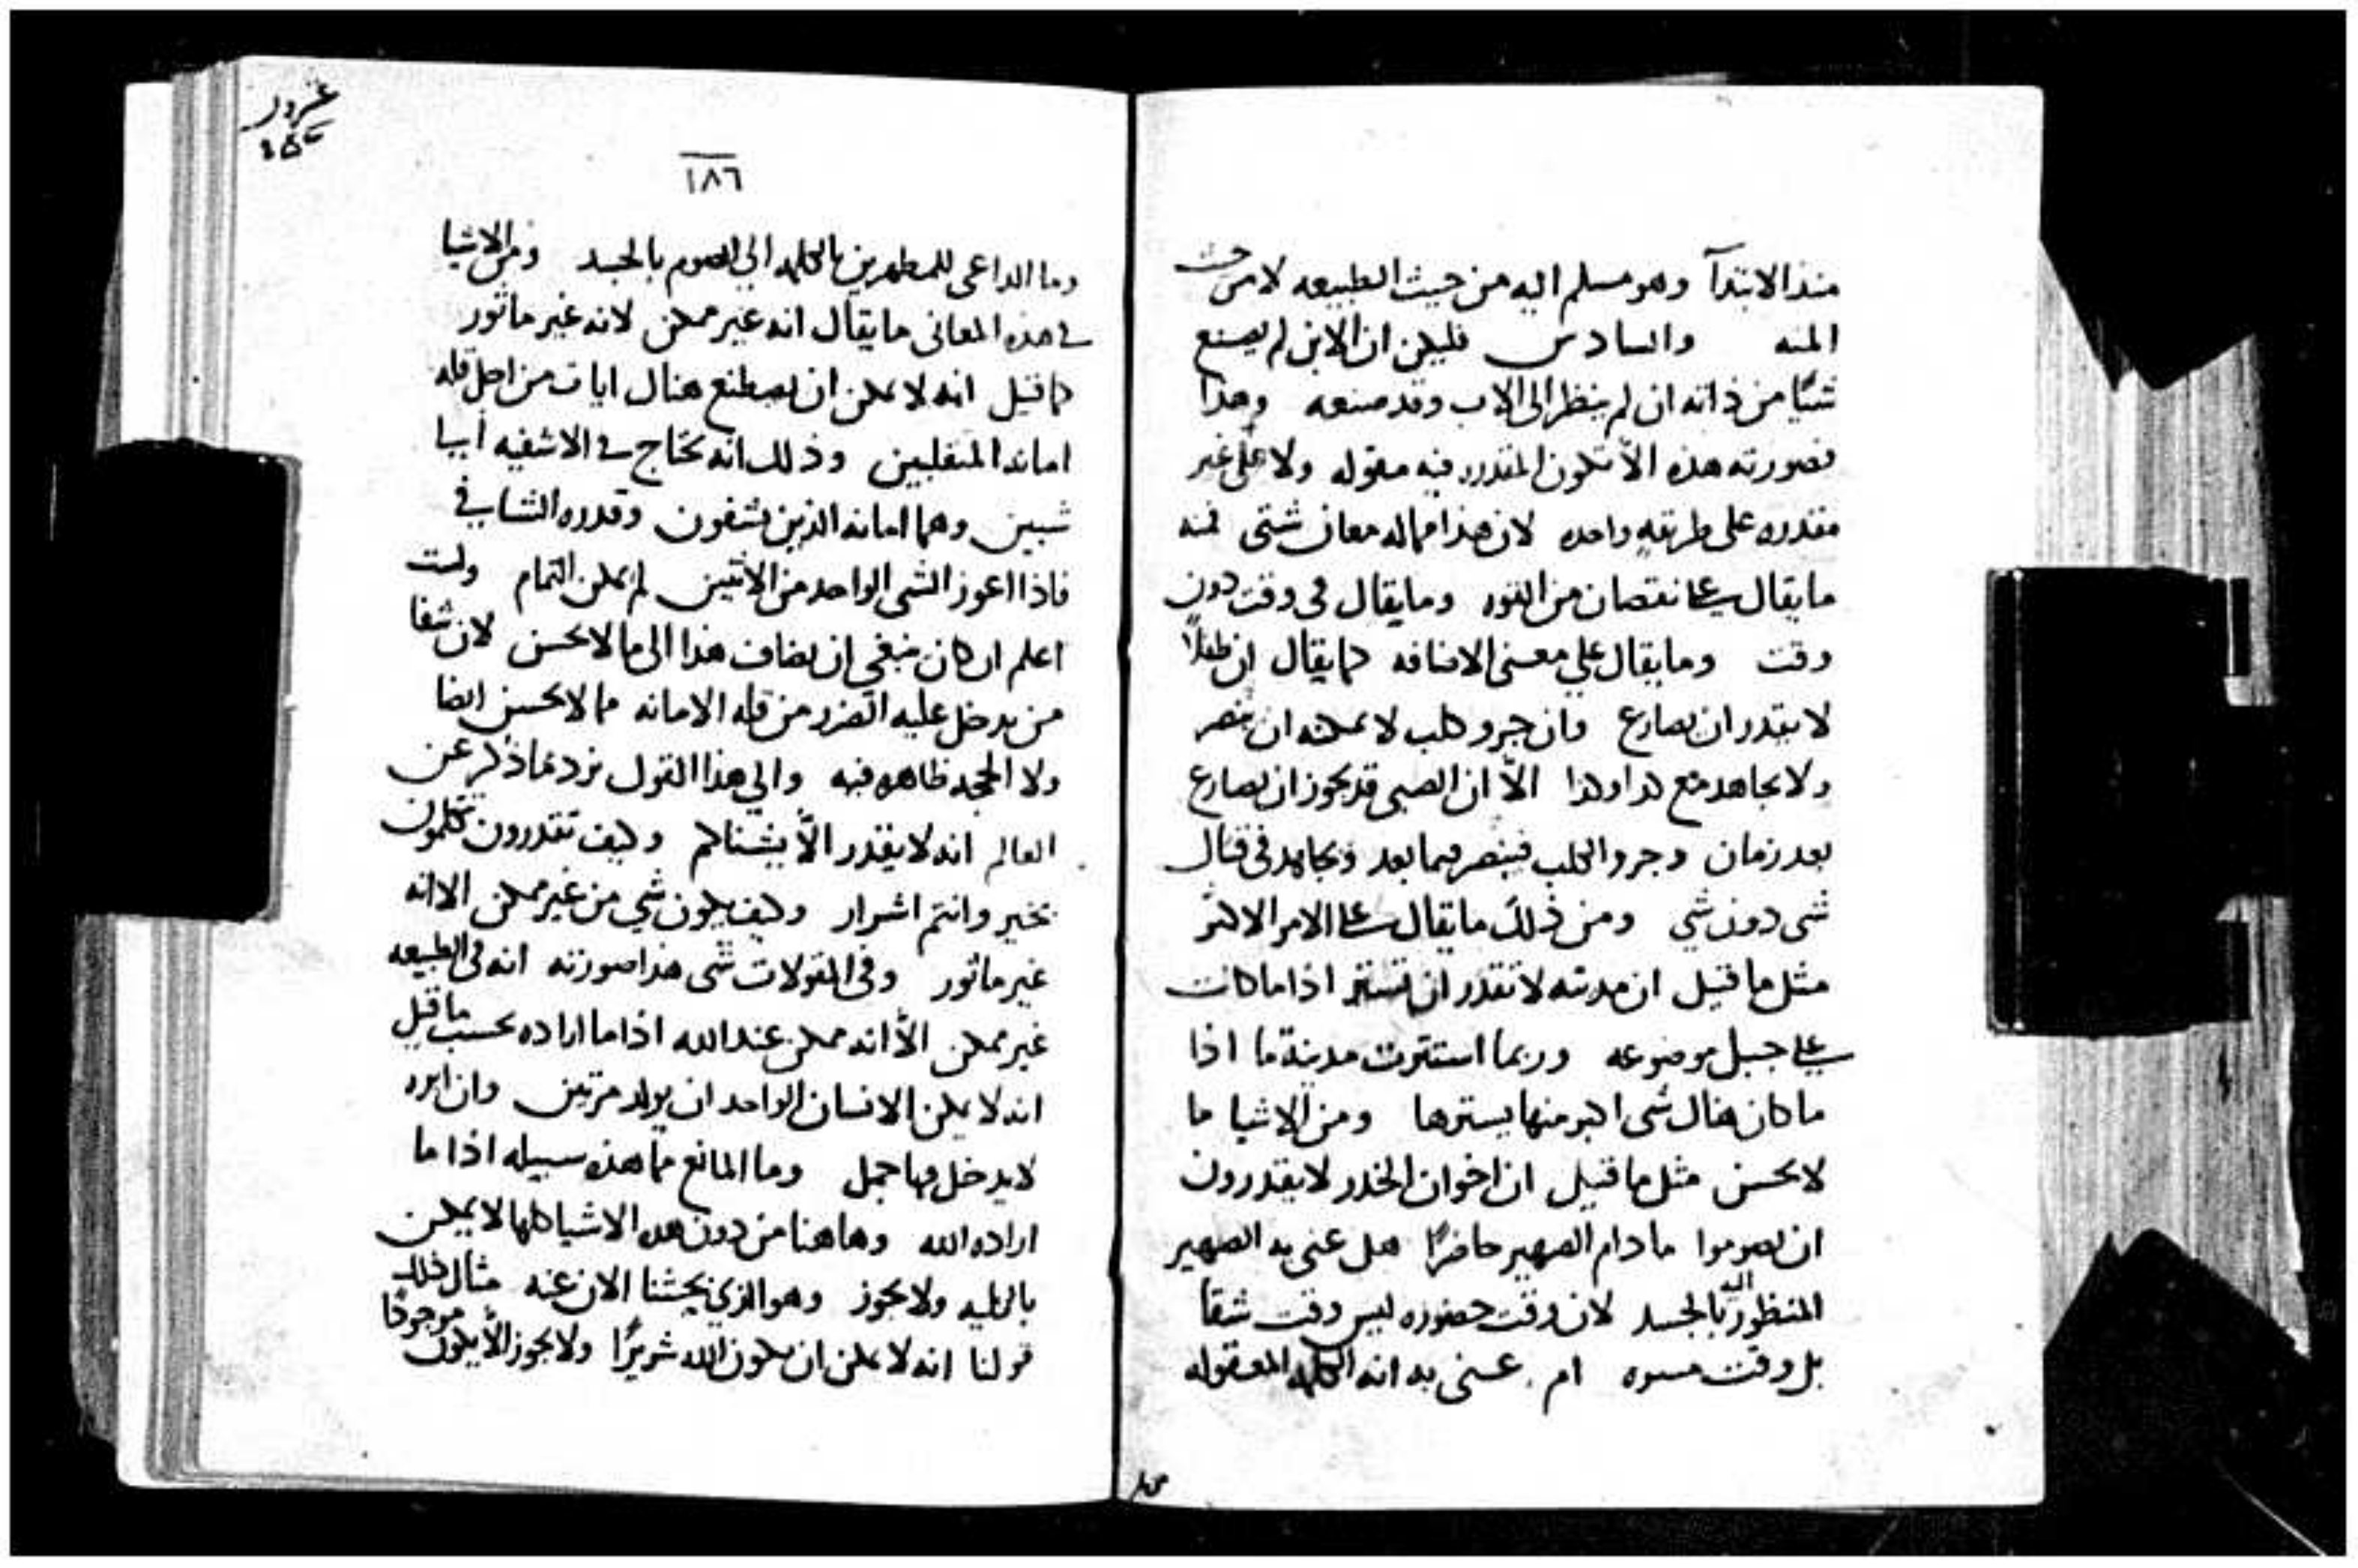 منذ الابتدآ وهو مسلم اليه من حيث الطبيعه لا من حيث
المنه والسادس فليكن ان الابن لم يصنع
شيًا من ذاته ان لم ينظر الى الاب وقد صنعه وهذا
فصورته هذه الاّ تكون المقدره فيه مقوله ولا على غير
مقدره على طريقةٍ واحده لان هذا مما له معان شتى فمنه
ما يقال على نقصان من القوه وما يقال في وقت دون
وقت وما يقال علي معنى الاضافه كما يقال ان طفلاً
لا يقدر ان يصارع وان جرو كلب لا يمكنه ان ينصر
ولا يجاهد مع كدا وكدا الاّ ان الصبي قد يجوز ان يصارع
بعد زمان وجرو الكلب فينصر فيما بعد ويجاهد في قتال
شى دون شي ومن ذلك ما يقال على الامر الاكثر
مثل ما قيل ان مدينه لا تقدر ان تستتر اذا ما كانت
على جبل موضوعه وربما استترت مدينة ما اذا
ما كان هناك شى اكبر منها يسترها ومن الاشيا ما
لا يحسن مثل ما قيل ان اخوان الخدر لا يقدرون
ان يصوموا ما دام الصهير حاضرًا هل عنى به الصهير
المنظور اليه بالجسد لان وقت حضوره ليس وقت شقا
بل وقت مسره ام عنى به انه الكلمه المعقوله
غرور
١٨٦
وما الداعى للمطهرين بالكلمه الي الصوم بالجسد ومن الاشيا
في هذه المعانى ما يقال انه غير ممكن لانه غير ماثور
كما قيل انه لا يمكن ان يصطنع هناك ايات من اجل قله
امانه المتقلبين وذلك انه يحتاج في الاشفيه ايما
شيين وهما امانه الذين يشفون وقدره الشافي
فاذا اعوز الشى الواحد من الاثنين لم يمكن التمام ولست
اعلم ان كان ينبغي ان يضاف هذا الى ما لا يحسن لان شفا
من يدخل عليه الضرر من قله الامانه مما لا يحسن ايضا
ولا الحجه ظاهره فيه والي هذا القول نرد ما ذكر عن
العالم انه لا يقدر الاّ يشناكم وكيف تقدرون تتكلمون
بخير وانتم اشرار وكيف يكون شي من غير ممكن الا انه
غير ماثور وفى المقولات شى هذا صورته انه فى الطبيعه
غير ممكن الاّ انه ممكن عند الله اذا ما اراده بحسب ما قيل
انه لا يمكن الانسان الواحد ان يولد مرتين وان ابره
لا يدخل فيها جمل وما المانع مما هذه سبيله اذا ما
اراده الله وها هنا من دون هذه الاشيا كلها لا يمكن
بالكليه ولا يجوز وهو الذي بحثنا الان عنه مثال ذلك
قولنا انه لا يمكن ان يكون الله شريرًا ولا يجوز الاّ يكون موجودًا